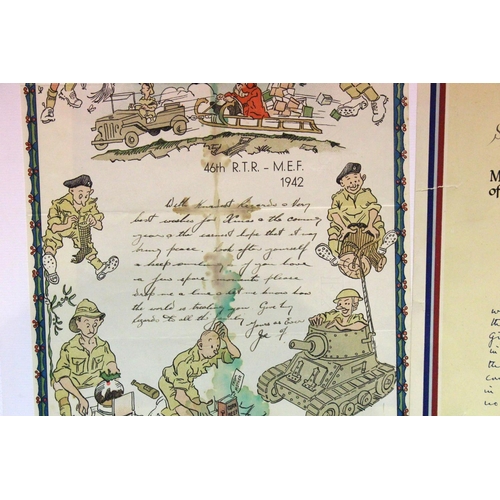 46th R.T.R. - M.E.F.
1942
With Kindest Regards & Very
best wishes for Xmas & the coming
year & the sincerest hope that it may
bring peace. look after yourself
& keep smiling. If you have
a few spare moments please
drop me a line and let me know how
the world is treating you. Give my
regards to all the family
Yours as Ever
Joe
M
of
w
the
gi
in
the
con
in
ne